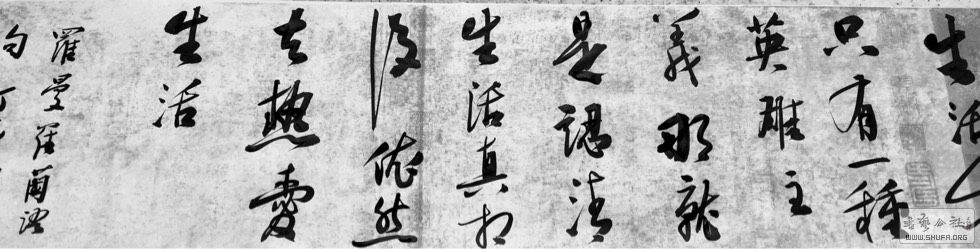 生活
只有一種
英雄主
義那就
是認清
生活真相
後依然
去熱愛
生活
羅曼羅蘭
句
書藝公社
WWW.SHUFA.ORG